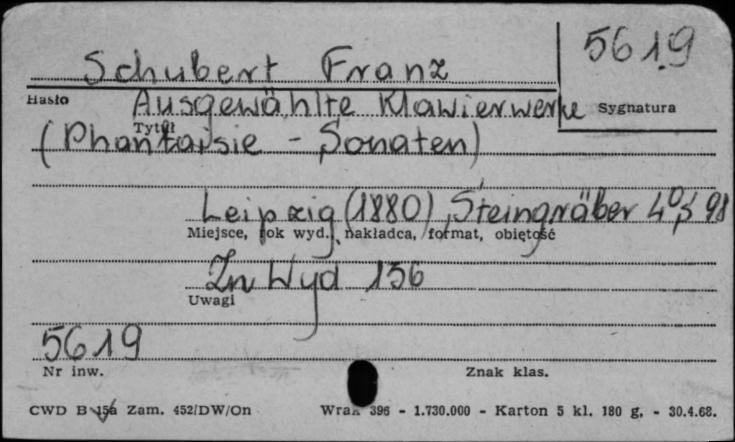 5619
Schubert Franz
Hasło
Ausgewählte Klawierwerke
Tytuł
Sygnatura
(Phantaisie - Sonaten)
Leipzig (1880), Steingräber 4°, s 98
Miejsce, rok wyd., nakładca, format, objętość
Zn Wyd 136
Uwagi
5619
Nr inw.
Znak klas.
CWD B 15a Zam. 452/DW/On
396 - 1.730.000 - Karton 5 kl. 180 g. - 30.4.68.